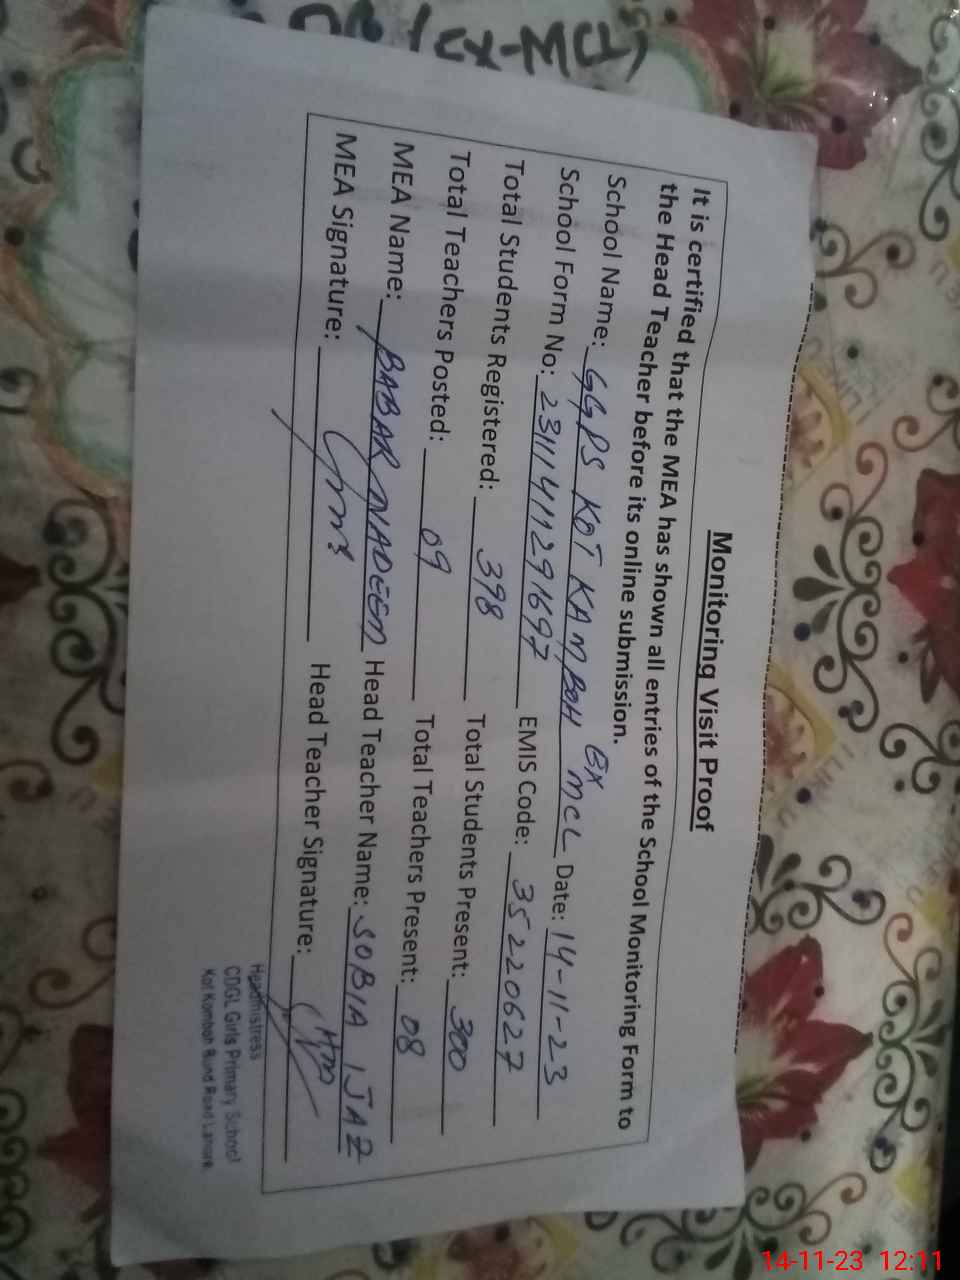 Monitoring Visit Proof
It is certified that the MEA has shown all entries of the School Monitoring Form to
the Head Teacher before its online submission.
School Name: GGPS KOT KAMBOH EX MCL Date: 14-11-23
School Form No: 23111411291697 EMIS Code: 35220627
Total Students Registered: 398 Total Students Present: 300
Total Teachers Posted: 09 Total Teachers Present: 08
MEA Name: BABAR NADEEM Head Teacher Name: SOBIA IJAZ
MEA Signature: Head Teacher Signature:
Headmistress
CDGL Girls Primary School
Kot Komboh Bund Road Lahore.
14-11-23 12:11